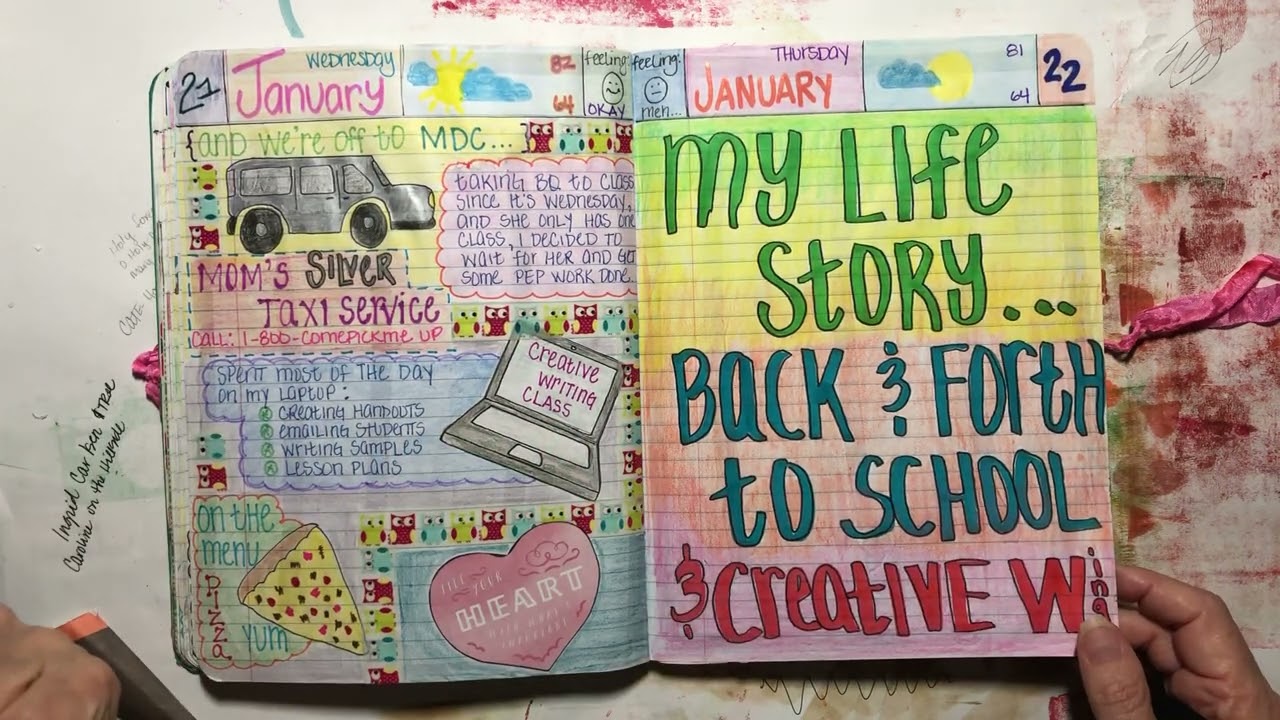 21
January
Wednesday
82
64
feeling:
OKAY
{and we're off to MDC...}
taking BQ to class
since it's Wednesday,
and she only has one
class, I decided to
wait for her and get
some PEP work done.
MOM'S SILVER
TAXI SERVICE
CALL: 1-800-comepickme up
spent most of the day
on my laptop:
creating handouts
emailing students
writing samples
lesson plans
Creative
Writing
Class
on the
menu
Pizza
yum
FILL YOUR
HEART
WITH WHAT'S
IMPORTANT
feeling:
meh...
JANUARY
THURSDAY
81
64
22
MY LIFE
STORY...
BACK & FORTH
to SCHOOL
& CREATIVE W
Ingrid Car Ben & Tree
Caroline on the Hillside